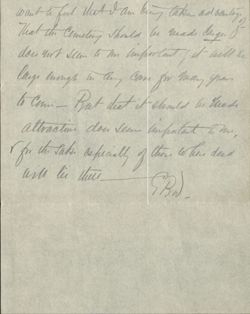 want to feel that I am being taken advantage
that the Cemetery should be made larger
does not seem to me important; it will be
large enough in any case for many years
to come — But that it should be made
attractive does seem important to me,
& for the sake especially of those whose dead
will lie there —